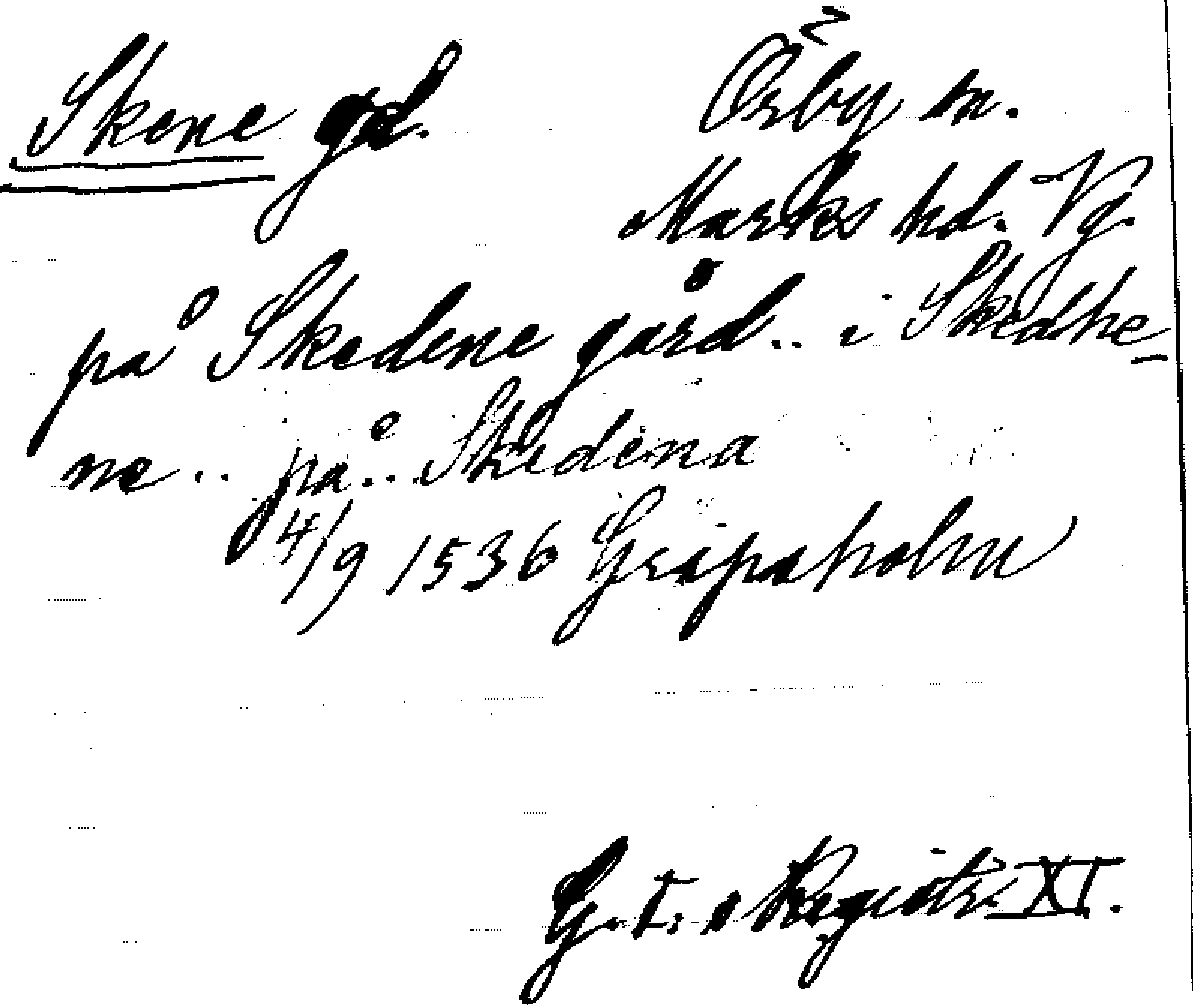 Skene gd. Örby sn.
Marks hd. Vg.
på Skedene gård.. i Skedhe-
ne.. på.. Skedena
4/9 1536 Gripsholm
G. I. s Registr. XI.